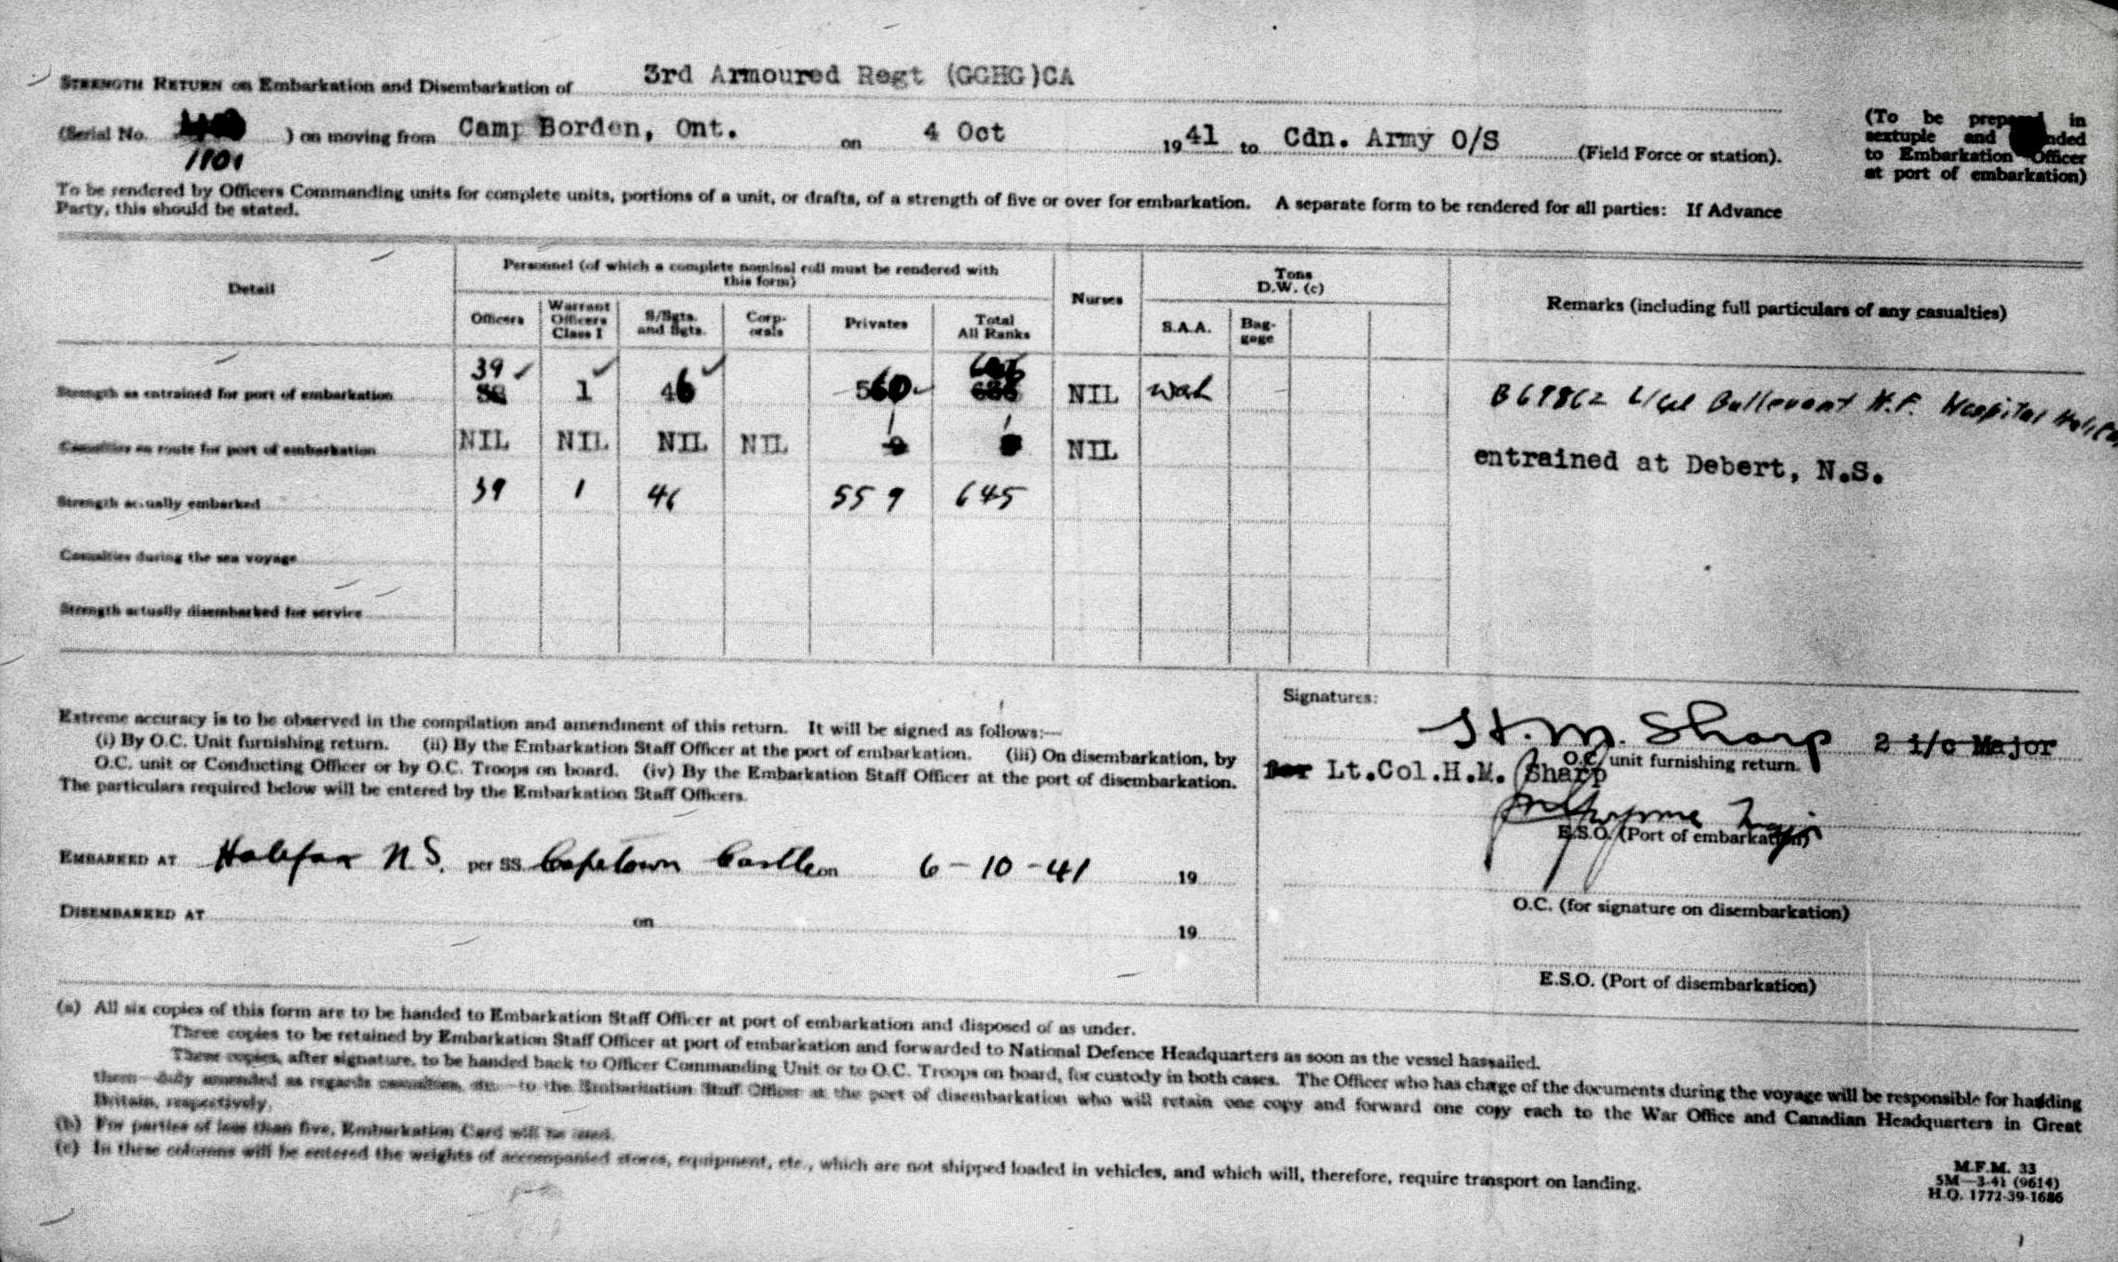 STRENGTH RETURN on Embarkation and Disembarkation of 3rd Armoured Regt (GGHG)CA
(Serial No. 1101 ) on moving from Camp Borden, Ont. on 4 Oct 1941 to Cdn. Army O/S (Field Force or station).
(To be prepared in
sextuple and handed
to Embarkation Officer
at port of embarkation)
To be rendered by Officers Commanding units for complete units, portions of a unit, or drafts, of a strength of five or over for embarkation. A separate form to be rendered for all parties: If Advance
Party, this should be stated.
Detail
Personnel (of which a complete nominal roll must be rendered with
this form)
Officers
Warrant
Officers
Class I
S/Sgts.
and Sgts.
Corp-
orals
Privates
Total
All Ranks
Nurses
Tons
D.W. (c)
S.A.A.
Bag-
gage
Remarks (including full particulars of any casualties)
Strength as entrained for port of embarkation 39 1 46 560 NIL
B69862 L/Cpl Hospital
Casualties en route for port of embarkation NIL NIL NIL NIL 1 1 NIL
entrained at Debert, N.S.
Strength actually embarked 39 1 46 559 645
Casualties during the sea voyage
Strength actually disembarked for service
Extreme accuracy is to be observed in the compilation and amendment of this return. It will be signed as follows:—
(i) By O.C. Unit furnishing return. (ii) By the Embarkation Staff Officer at the port of embarkation. (iii) On disembarkation, by
O.C. unit or Conducting Officer or by O.C. Troops on board. (iv) By the Embarkation Staff Officer at the port of disembarkation.
The particulars required below will be entered by the Embarkation Staff Officers.
Signatures:
H. M. Sharp 2 i/c Major
O.C. unit furnishing return.
For Lt.Col.H.M. Sharp
E.S.O. (Port of embarkation)
O.C. (for signature on disembarkation)
E.S.O. (Port of disembarkation)
EMBARKED AT Halifax N.S. per SS. Capetown Castle on 6-10-41 19
DISEMBARKED AT on 19
(a) All six copies of this form are to be handed to Embarkation Staff Officer at port of embarkation and disposed of as under.
Three copies to be retained by Embarkation Staff Officer at port of embarkation and forwarded to National Defence Headquarters as soon as the vessel hassailed.
Three copies, after signature, to be handed back to Officer Commanding Unit or to O.C. Troops on board, for custody in both cases. The Officer who has charge of the documents during the voyage will be responsible for handing
them—duly amended as regards casualties, etc.—to the Embarkation Staff Officer at the port of disembarkation who will retain one copy and forward one copy each to the War Office and Canadian Headquarters in Great
Britain, respectively.
(b) For parties of less than five, Embarkation Card will be used.
(c) In these columns will be entered the weights of accompanied stores, equipment, etc., which are not shipped loaded in vehicles, and which will, therefore, require transport on landing.
M.F.M. 33
5M—3-41 (9614)
H.Q. 1772-39-1686